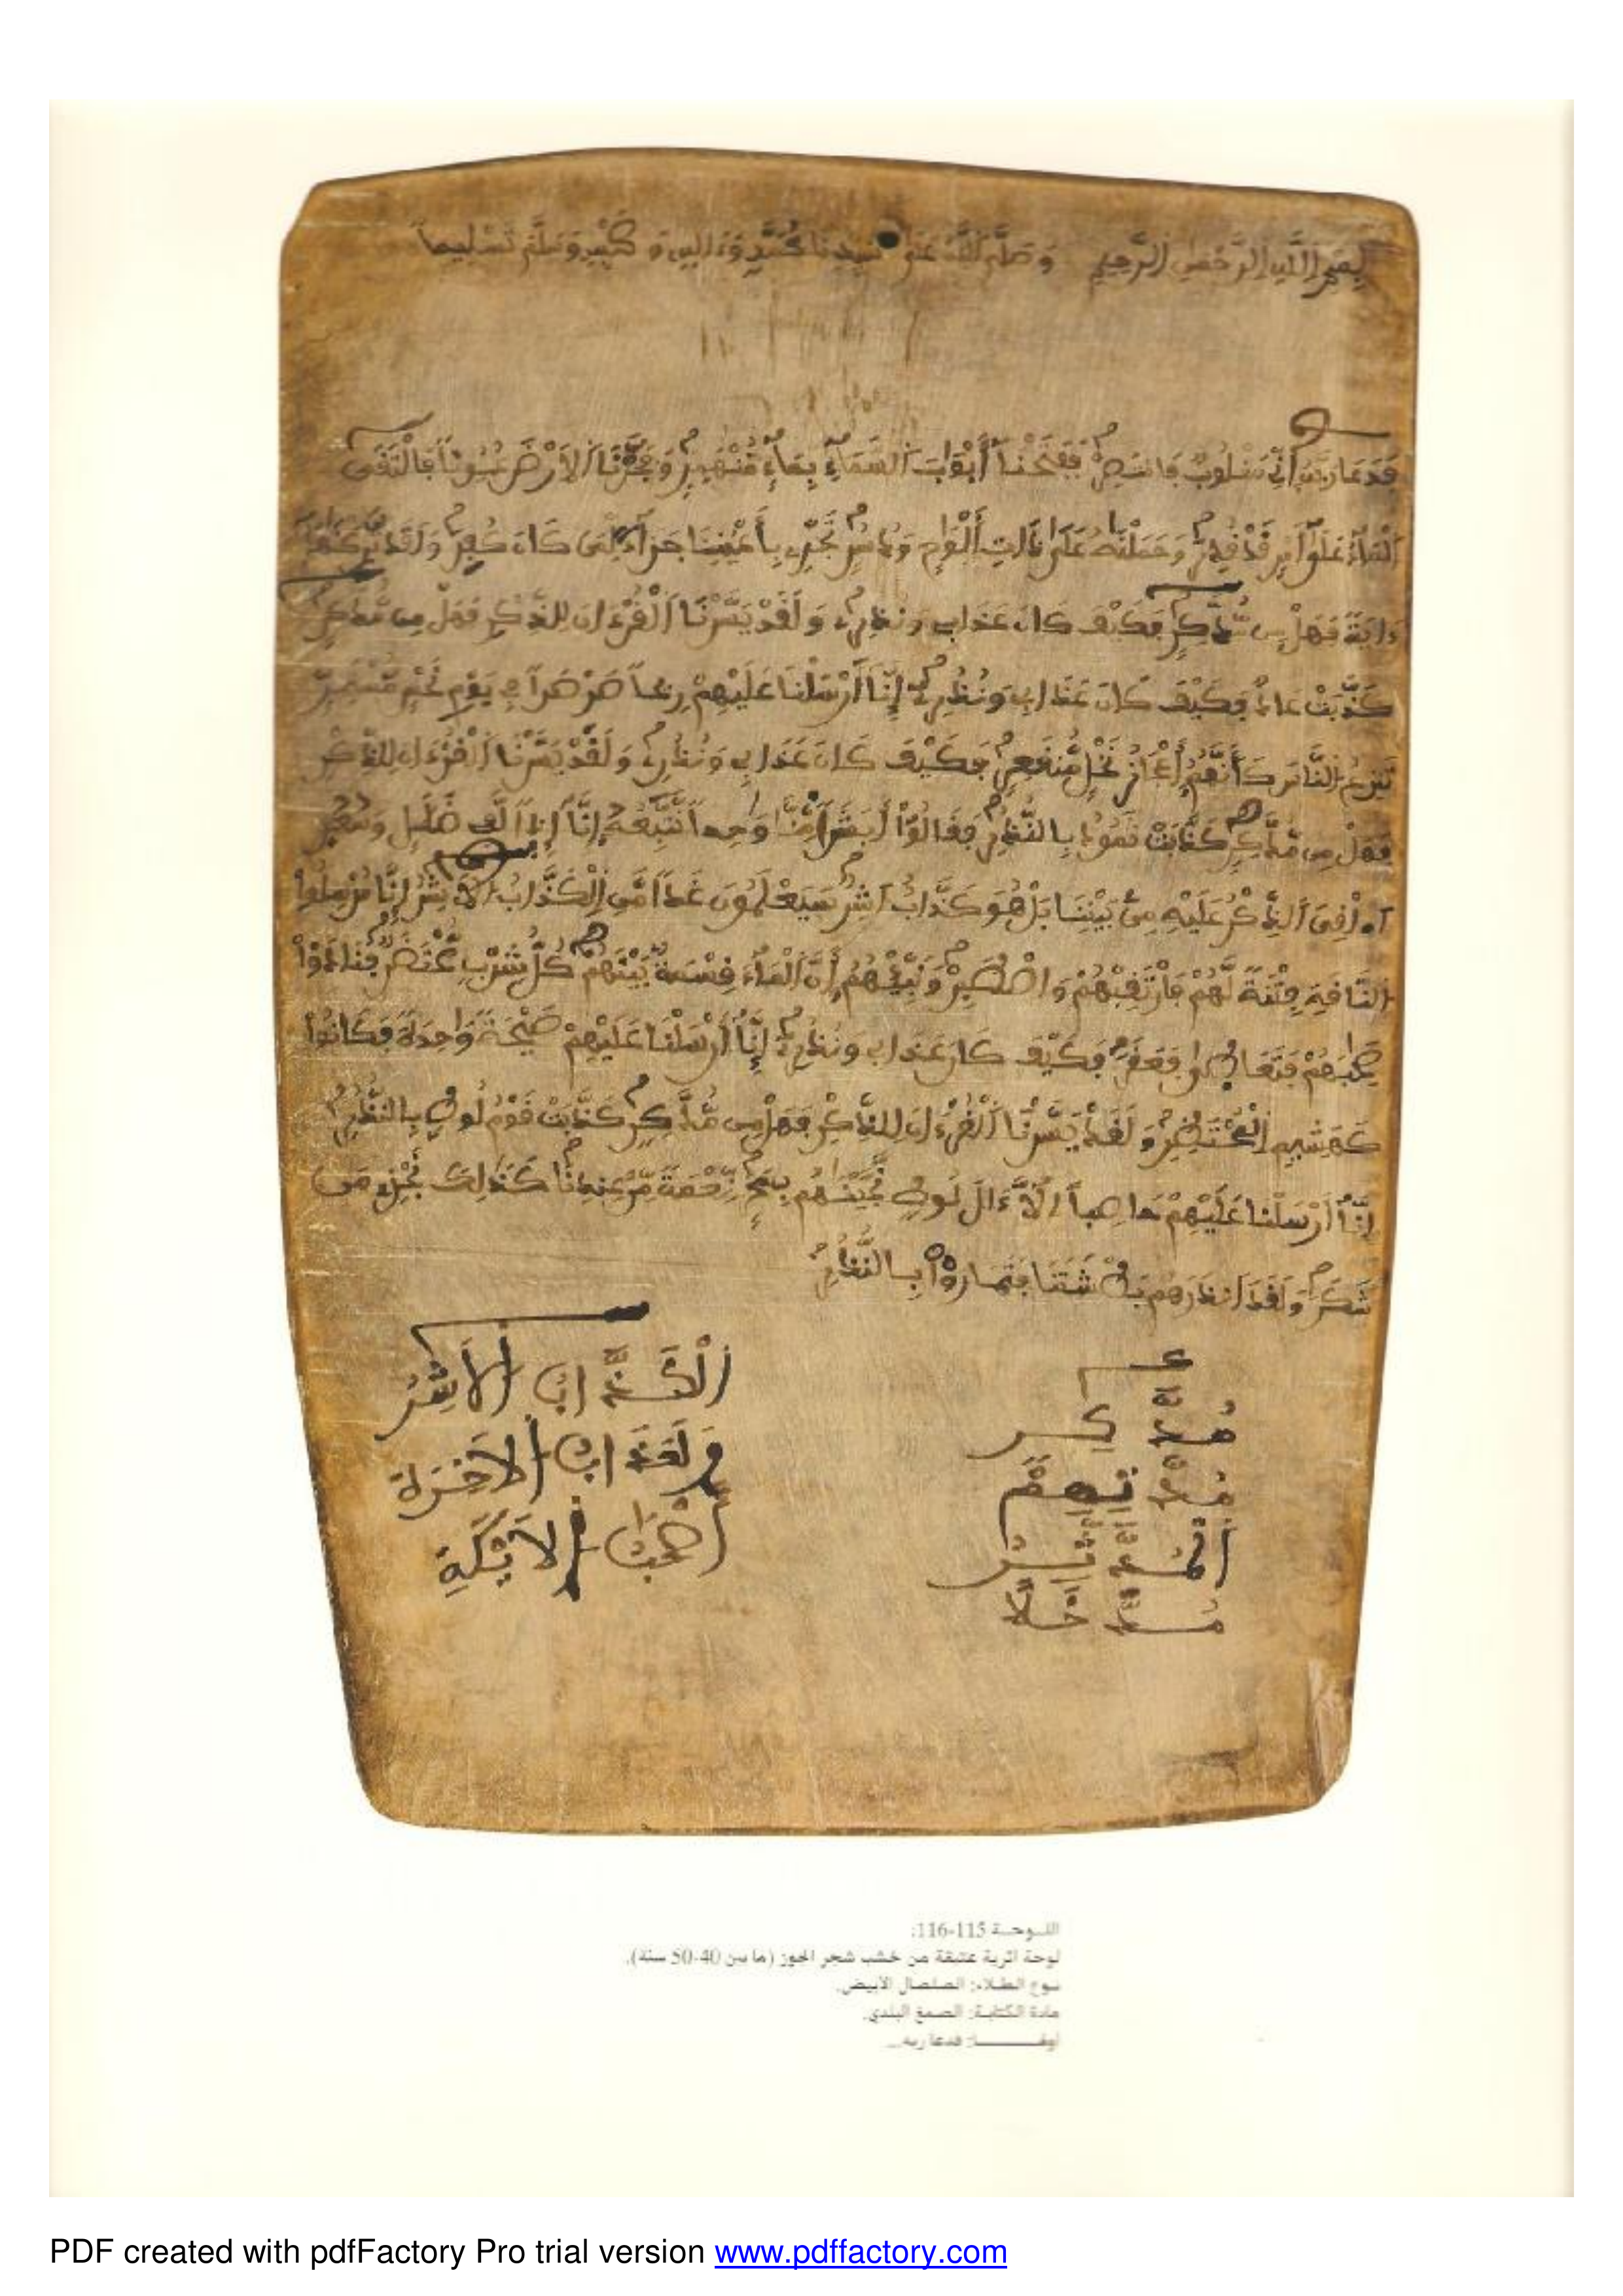 بِسْمِ اِللَّهِ اِلرَّحْمَٰنِ اِلرَّحِيمِ وَصَلَّى اَللَّهُ عَلَىٰ سَيِّدِنَا مُحَمَّدٍ وَءَالِهِ وَصَحْبِهِ وَسَلَّمَ تَسْلِيماً
فَدَعَا رَبَّهُ أَنِّي مَغْلُوبٌ فَانتَصِرْ فَفَتَحْنَا أَبْوَٰبَ اَلسَّمَآءِ بِمَآءٍ مُّنْهَمِرٍ وَفَجَّرْنَا اَلْأَرْضَ عُيُوناً فَالْتَقَى
اَلْمَآءُ عَلَىٰٓ أَمْرٍ قَدْ قُدِرَ وَحَمَلْنَٰهُ عَلَىٰ ذَاتِ أَلْوَٰحٍ وَدُسُرٍ تَجْرِي بِأَعْيُنِنَا جَزَآءً لِّمَن كَانَ كُفِرَ وَلَقَد تَّرَكْنَٰهَآ
ءَايَةً فَهَلْ مِن مُّدَّكِرٍ فَكَيْفَ كَانَ عَذَابِي وَنُذُرِۦ وَلَقَدْ يَسَّرْنَا اَلْقُرْءَانَ لِلذِّكْرِ فَهَلْ مِن مُّدَّكِرٍ
كَذَّبَتْ عَادٌ فَكَيْفَ كَانَ عَذَابِي وَنُذُرِۦ إِنَّآ أَرْسَلْنَا عَلَيْهِمْ رِيحاً صَرْصَراً فِي يَوْمِ نَحْسٍ مُّسْتَمِرٍّ
تَنزِعُ اُلنَّاسَ كَأَنَّهُمْ أَعْجَازُ نَخْلٍ مُّنقَعِرٍ فَكَيْفَ كَانَ عَذَابِي وَنُذُرِۦ وَلَقَدْ يَسَّرْنَا اَلْقُرْءَانَ لِلذِّكْرِ
فَهَلْ مِن مُّدَّكِرٍ كَذَّبَتْ ثَمُودُ بِالنُّذُرِ فَقَالُوٓاْ أَبَشَراً مِّنَّا وَٰحِداً نَّتَّبِعُهُۥٓ إِنَّآ إِذاً لَّفِي ضَلَٰلٍ وَسُعُرٍ
أَٰ۟لْقِيَ اَلذِّكْرُ عَلَيْهِ مِنۢ بَيْنِنَا بَلْ هُوَ كَذَّابٌ أَشِرٌ سَيَعْلَمُونَ غَداً مَّنِ اِلْكَذَّابُ اُلْأَشِرُ إِنَّا مُرْسِلُواْ
اُلنَّاقَةِ فِتْنَةً لَّهُمْ فَارْتَقِبْهُمْ وَاصْطَبِرْ وَنَبِّئْهُمُۥٓ أَنَّ اَلْمَآءَ قِسْمَةٌۢ بَيْنَهُمْ كُلُّ شِرْبٍ مُّحْتَضَرٌ فَنَادَوْاْ
صَٰحِبَهُمْ فَتَعَاطَىٰ فَعَقَرَ فَكَيْفَ كَانَ عَذَابِي وَنُذُرِۦ إِنَّآ أَرْسَلْنَا عَلَيْهِمْ صَيْحَةً وَٰحِدَةً فَكَانُواْ
كَهَشِيمِ اِلْمُحْتَظِرِ وَلَقَدْ يَسَّرْنَا اَلْقُرْءَانَ لِلذِّكْرِ فَهَلْ مِن مُّدَّكِرٍ كَذَّبَتْ قَوْمُ لُوطٍۢ بِالنُّذُرِ
إِنَّآ أَرْسَلْنَا عَلَيْهِمْ حَاصِباً اِلَّآ ءَالَ لُوطٍ نَّجَّيْنَٰهُم بِسَحَرٍ نِّعْمَةً مِّنْ عِندِنَا كَذَٰلِكَ نَجْزِي مَن
شَكَرَ وَلَقَدَ اَنذَرَهُم بَطْشَتَنَا فَتَمَارَوْاْ بِالنُّذُرِ
مُدَّكِر اَلْكَذَّابُ اُلْأَشِرُ
وَلَعَذَابُ اُلْأَخِرَةِ
اَلْمُدَّثِّرُ أَصْحَٰبُ اُلْأَيْكَةِ
مُدَّخَلًا
اللوحة 115-116:
لوحة أثرية عتيقة من خشب شجر الجوز (ما بين 40-50 سنة).
نوع الطلاء: الصلصال الأبيض.
مادة الكتابة: الصمغ البلدي.
فدعا ربه...
PDF created with pdfFactory Pro trial version www.pdffactory.com